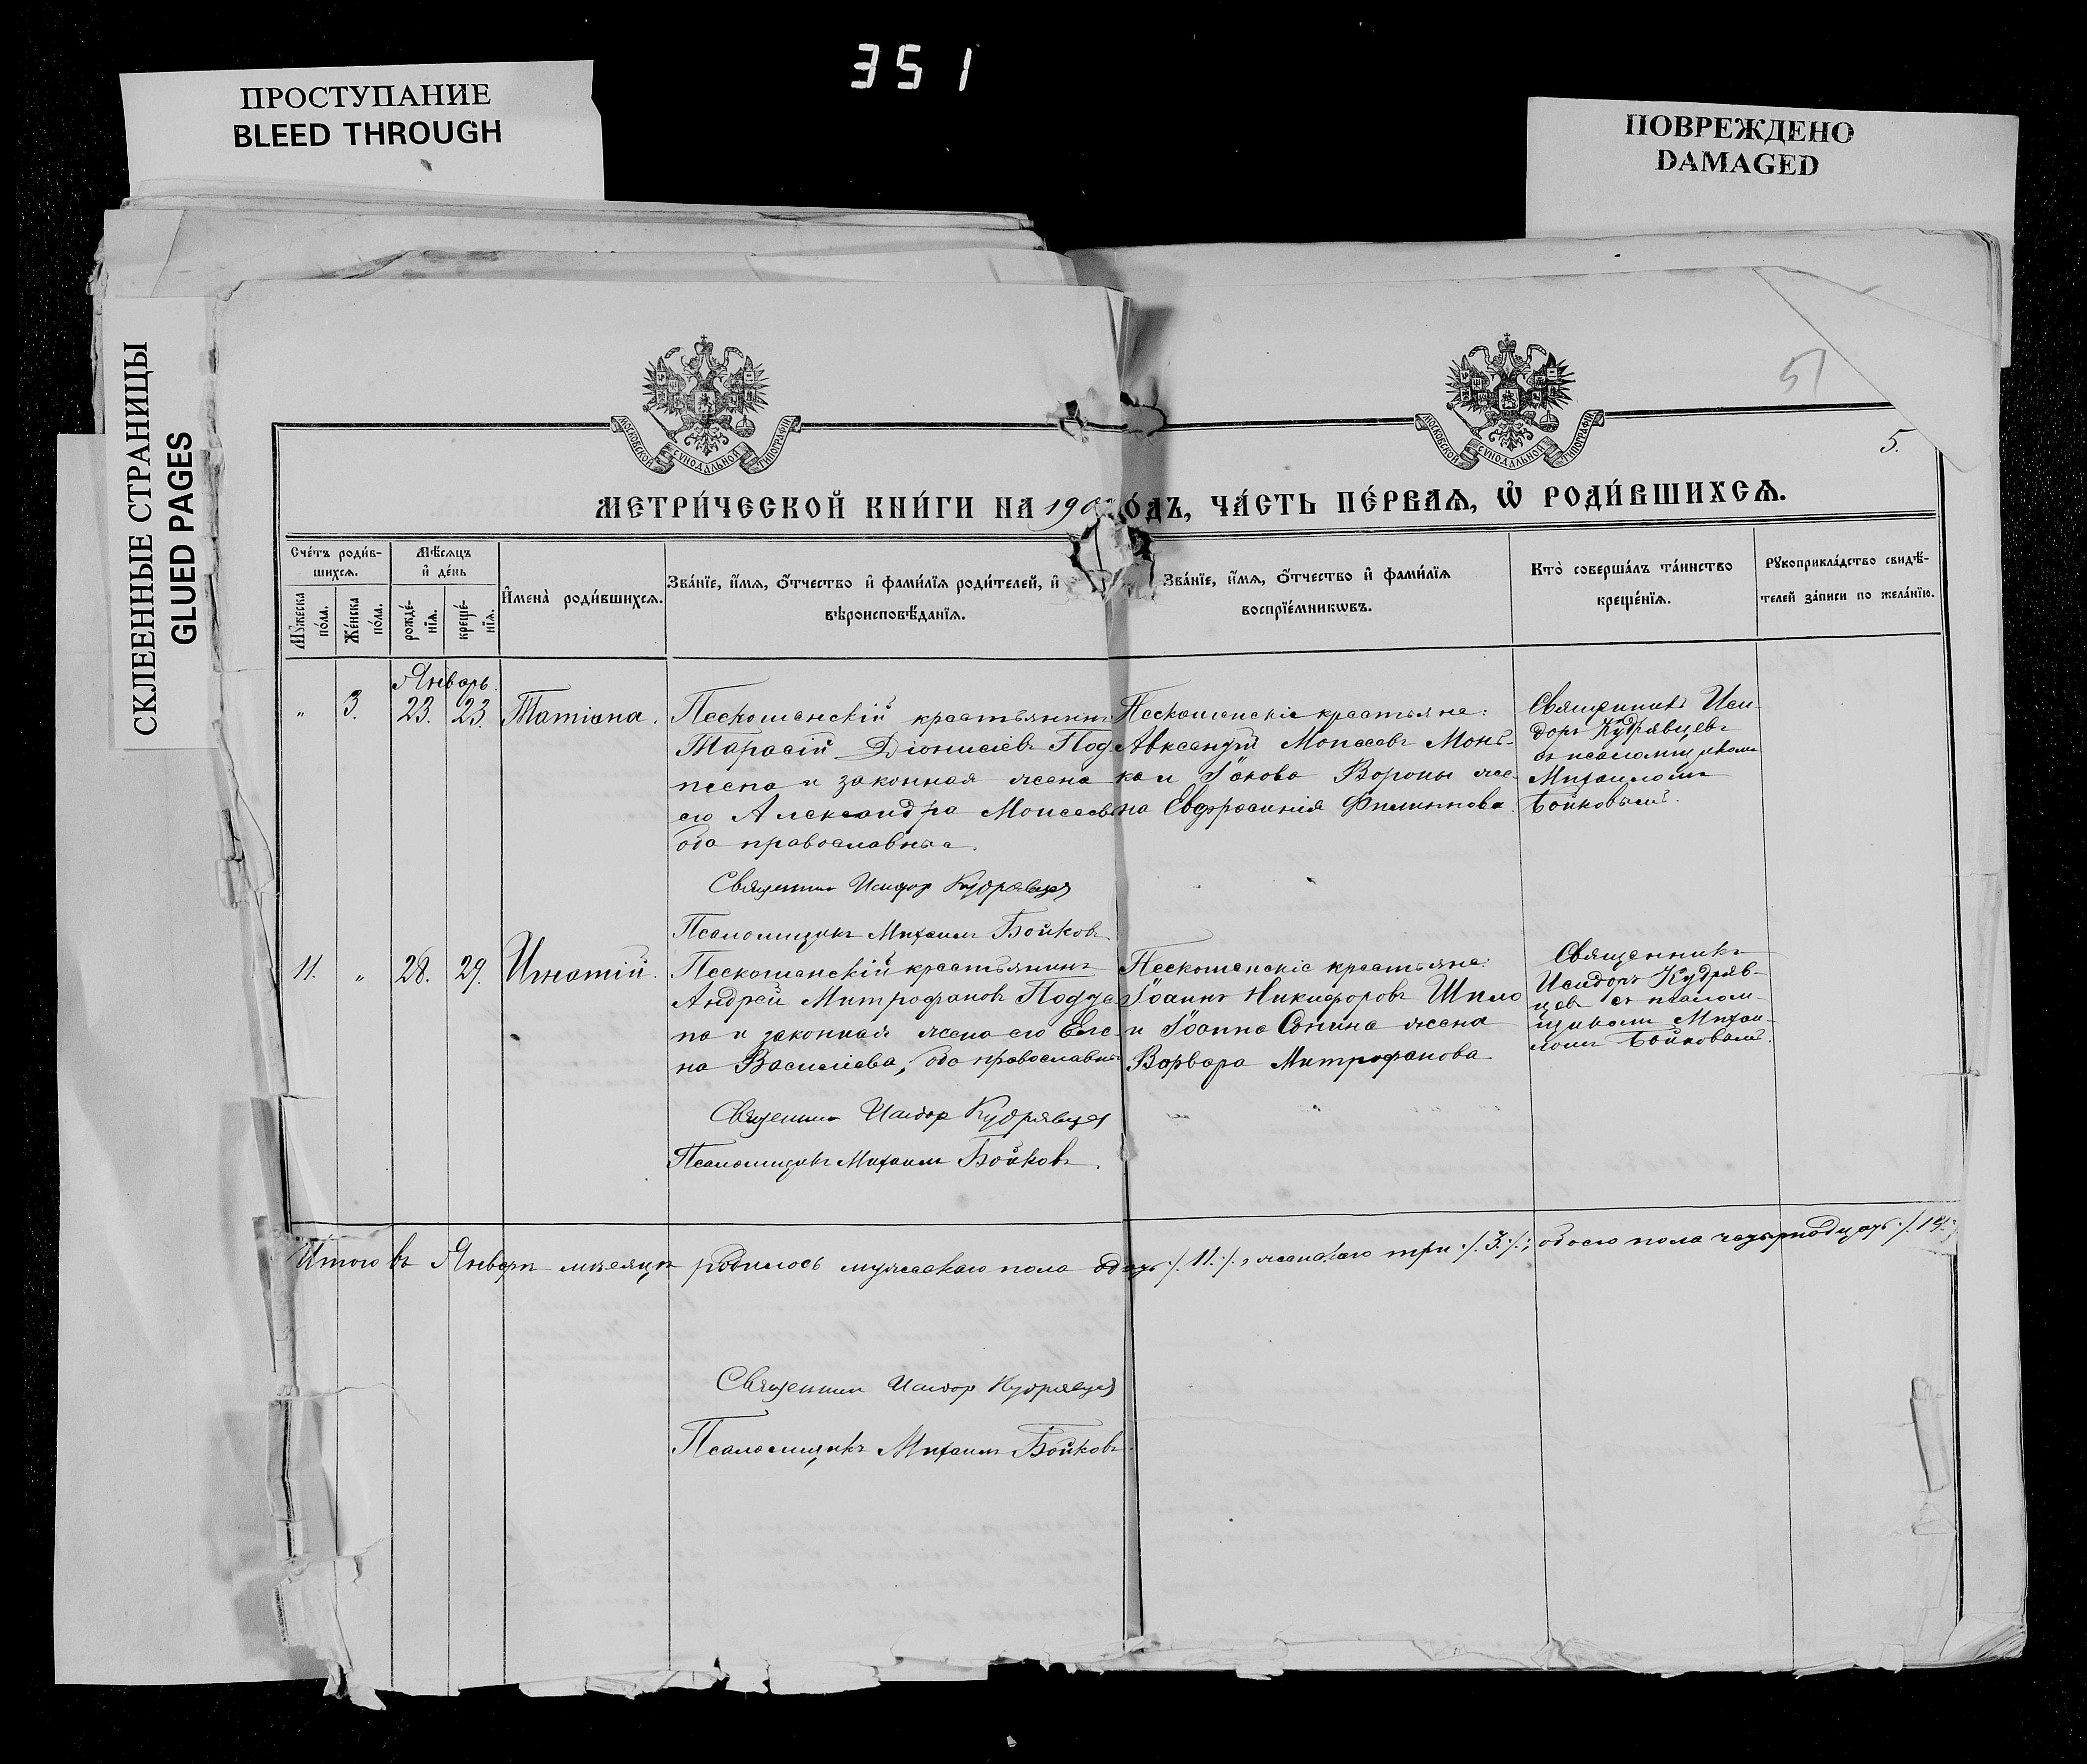 351
ПРОСТУПАНИЕ
BLEED THROUGH
ПОВРЕЖДЕНО
DAMAGED
СКЛЕЕННЫЕ СТРАНИЦЫ
GLUED PAGES
МОСКОВСКОЙ СѴНОДАЛЬНОЙ ТИПОГРАФІИ
МОСКОВСКОЙ СѴНОДАЛЬНОЙ ТИПОГРАФІИ
51
5.
МЕТРИ́ЧЕСКОЙ КНИ́ГИ НА 190 о́дъ, ЧА́СТЬ ПЕ́РВАѦ, Ѡ҆ РОДИ́ВШИХСѦ.
Сче́тъ роди́в-
шихсѧ.
Мꙋ́жеска по́ла.
Же́нска по́ла.
Мѣ́сѧцъ и҆ де́нь
рожде́-нїѧ.
креще́-нїѧ.
И҆мена̀ роди́вшихсѧ.
Зва́нїе, и҆́мѧ, ѻ҆́тчество и҆ фами́лїѧ роди́телей, и҆
вѣроисповѣ́данїѧ.
Зва́нїе, и҆́мѧ, ѻ҆́тчество и҆ фами́лїѧ
воспрїе́мникѡвъ.
Кто̀ соверша́лъ та́инство
креще́нїѧ.
Рꙋкоприкла́дство свидѣ́-
телей за́писи по жела́нїю.
Январь.
" 3. 23. 23. Татіана.
Пескошанскій крестьянинъ
Тарасій Діонисіевъ Под-
пепа и законная жена
его Александра Моисеева
оба православные.
Священник Исидор Кудрявцев
Псаломщикъ Михаилъ Бойковъ
Пескошанскіе крестьяне:
Авксентій Моисеевъ
и Іакова Вороны же-
на Евфросинія Филиппова.
Священникъ Иси-
доръ Кудрявцевъ
съ псаломщикомъ
Михаиломъ
Бойковымъ.
11. " 28. 29. Игнатій.
Пескошанскій крестьянинъ
Андрей Митрофановъ
и законная жена его Еле-
на Василіева, оба православные
Священник Исидор Кудрявцев
Псаломщикъ Михаилъ Бойковъ.
Пескошанскіе крестьяне:
Іоаннъ Никифоровъ Шило
и Іоанна Сонина жена
Варвара Митрофанова.
Священникъ
Исидоръ Кудряв-
цевъ съ псалом-
щикомъ Михаи-
ломъ Бойковымъ.
Итого въ Январѣ мѣсяцѣ родилось мужескаго пола одинадцать /. 11 ./, женскаго три /. 3 ./; обоего пола четырнадцать /. 14 ./
Священник Исидор Кудрявцев
Псаломщикъ Михаилъ Бойковъ.